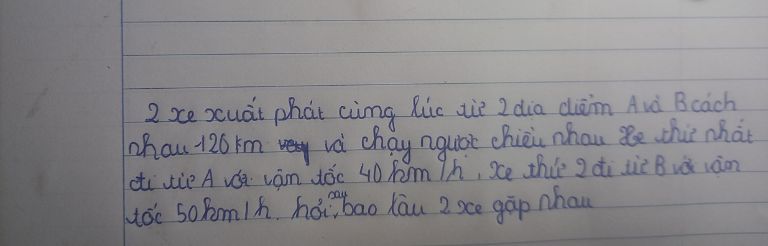 2 xe xuất phát cùng lúc từ 2 địa điểm A và B cách
nhau 126 km và chạy ngược chiều nhau xe thứ nhất
đi từ A với vận tốc 40 km/h, xe thứ 2 đi từ B với vận
tốc 50 km/h. hỏi sau bao lâu 2 xe gặp nhau